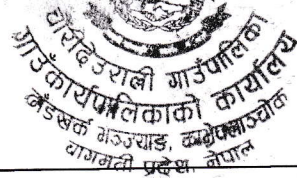 चौरीदेउराली गाउँपालिका
गाउँ कार्यपालिकाको कार्यालय
काँडखर्क भञ्ज्याङ, काभ्रेपलाञ्चोक
बागमती प्रदेश, नेपाल